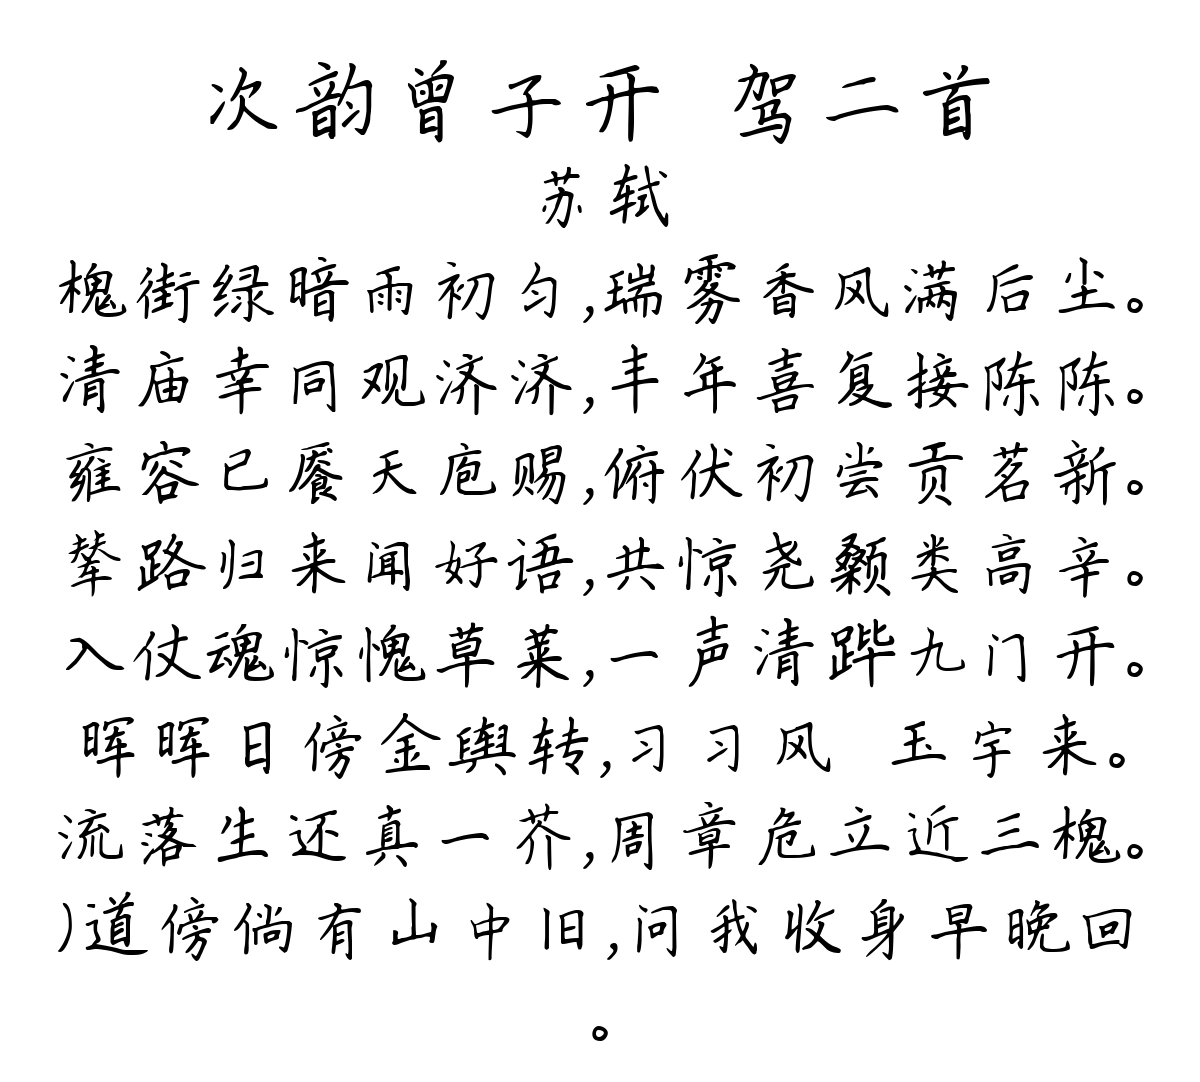 次韵曾子开 驾二首
苏轼
槐街绿暗雨初匀,瑞雾香风满后尘。
清庙幸同观济济,丰年喜复接陈陈。
雍容已餍天庖赐,俯伏初尝贡茗新。
辇路归来闻好语,共惊尧颡类高辛。
入仗魂惊愧草莱,一声清跸九门开。
晖晖日傍金舆转,习习风 玉宇来。
流落生还真一芥,周章危立近三槐。
)道傍倘有山中旧,问我收身早晚回
。